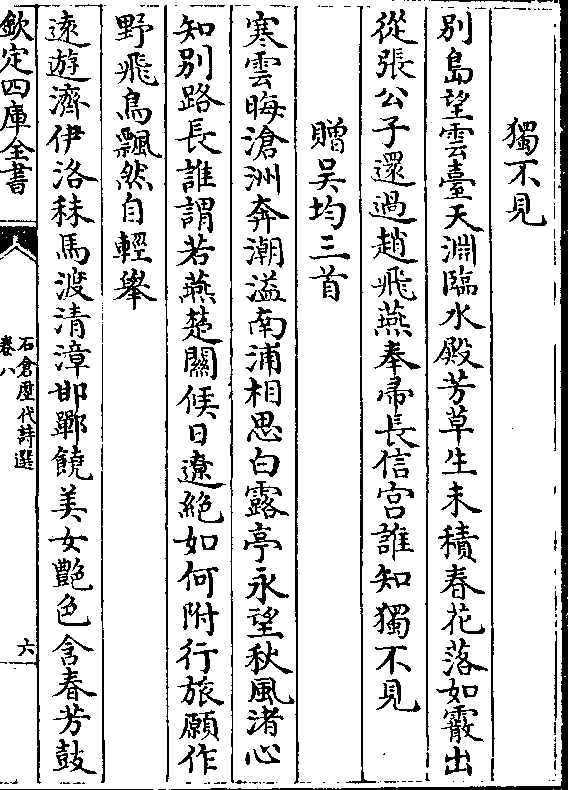 獨不見
別島望雲臺天淵臨水殿芳草生未積春花落如霰出
從張公子還過趙飛燕奉帚長信宫誰知獨不見
贈吴均三首
寒雲晦滄洲奔潮溢南浦相思白露亭永望秋風渚心
知别路長誰謂若燕楚關候日遼絶如何附行旅願作
野飛鳥飄然自輕舉
逺遊濟伊洛秣馬渡清漳邯鄲饒美女艶色含春芳鼓
欽定四庫全書
石倉歷代詩選
卷八
六